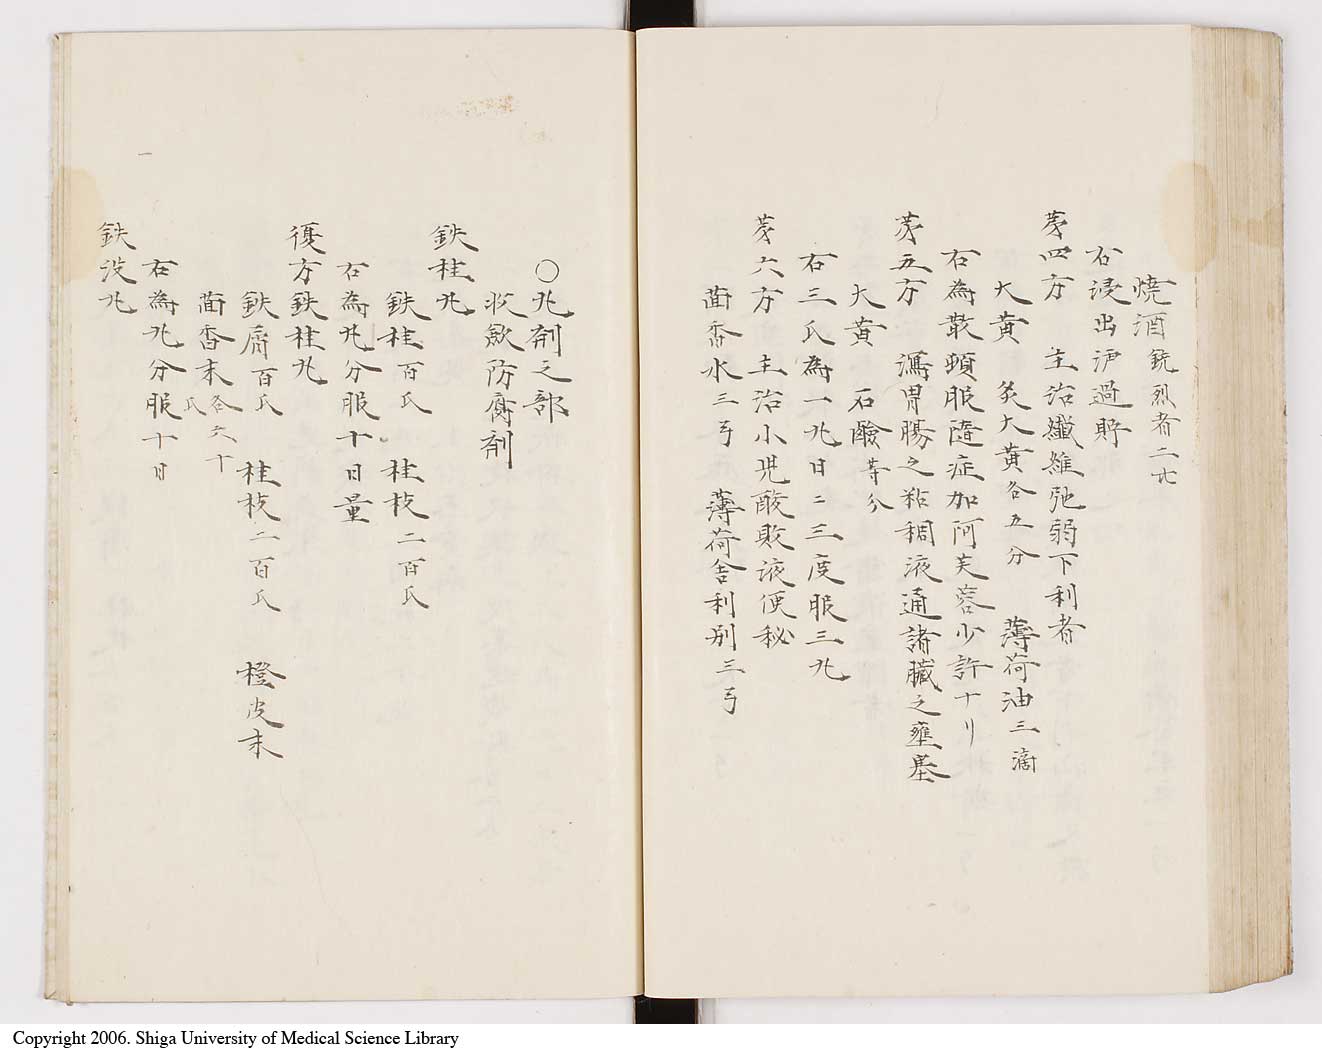 焼酒銃烈者二㪷
右浸出沪過貯
第四方　主治纖維弛弱下利者
大黄　炙大黄各五分　薄荷油三滴
右為散頓服隨症加阿芙蓉少許十リ
第五方　瀉胃腸之粘稠液通諸臓之壅塞
大黄　石鹸等分
右三氏為一丸日二三度服三丸
第六方　主治小児酸敗液便秘
茴香水三弓　薄荷舎利別三弓
〇丸剤之部
收歛防腐剤
鉄桂丸
鉄桂百氏　桂枝二百氏
右為丸分服十日量
復方鉄桂丸
鉄屑百氏　桂枝二百氏　橙皮末
茴香末各六十氏
右為丸分服十日
鉄没丸
Copyright 2006. Shiga University of Medical Science Library